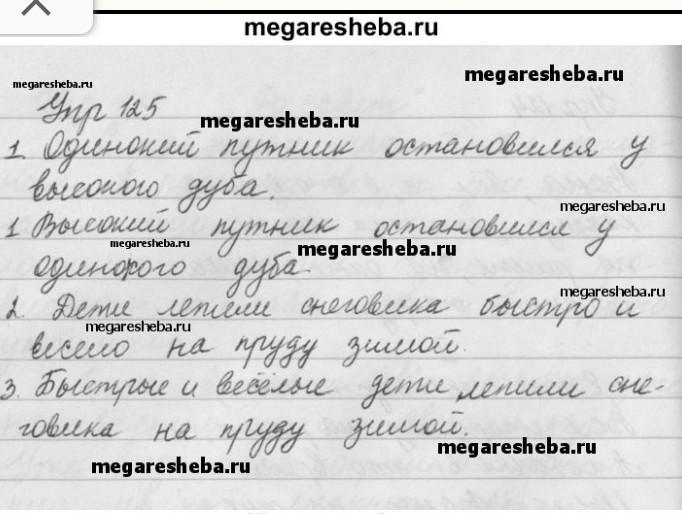 megaresheba.ru
megaresheba.ru
megaresheba.ru
Упр 125
megaresheba.ru
1. Одинокий путник остановился у
высокого дуба.
megaresheba.ru
1 Высокий путник остановился у
megaresheba.ru
megaresheba.ru
одинокого дуба.
megaresheba.ru
2. Дети лепили снеговика быстро и
megaresheba.ru
весело на пруду зимой.
3. Быстрые и весёлые дети лепили сне-
говика на пруду зимой.
megaresheba.ru
megaresheba.ru